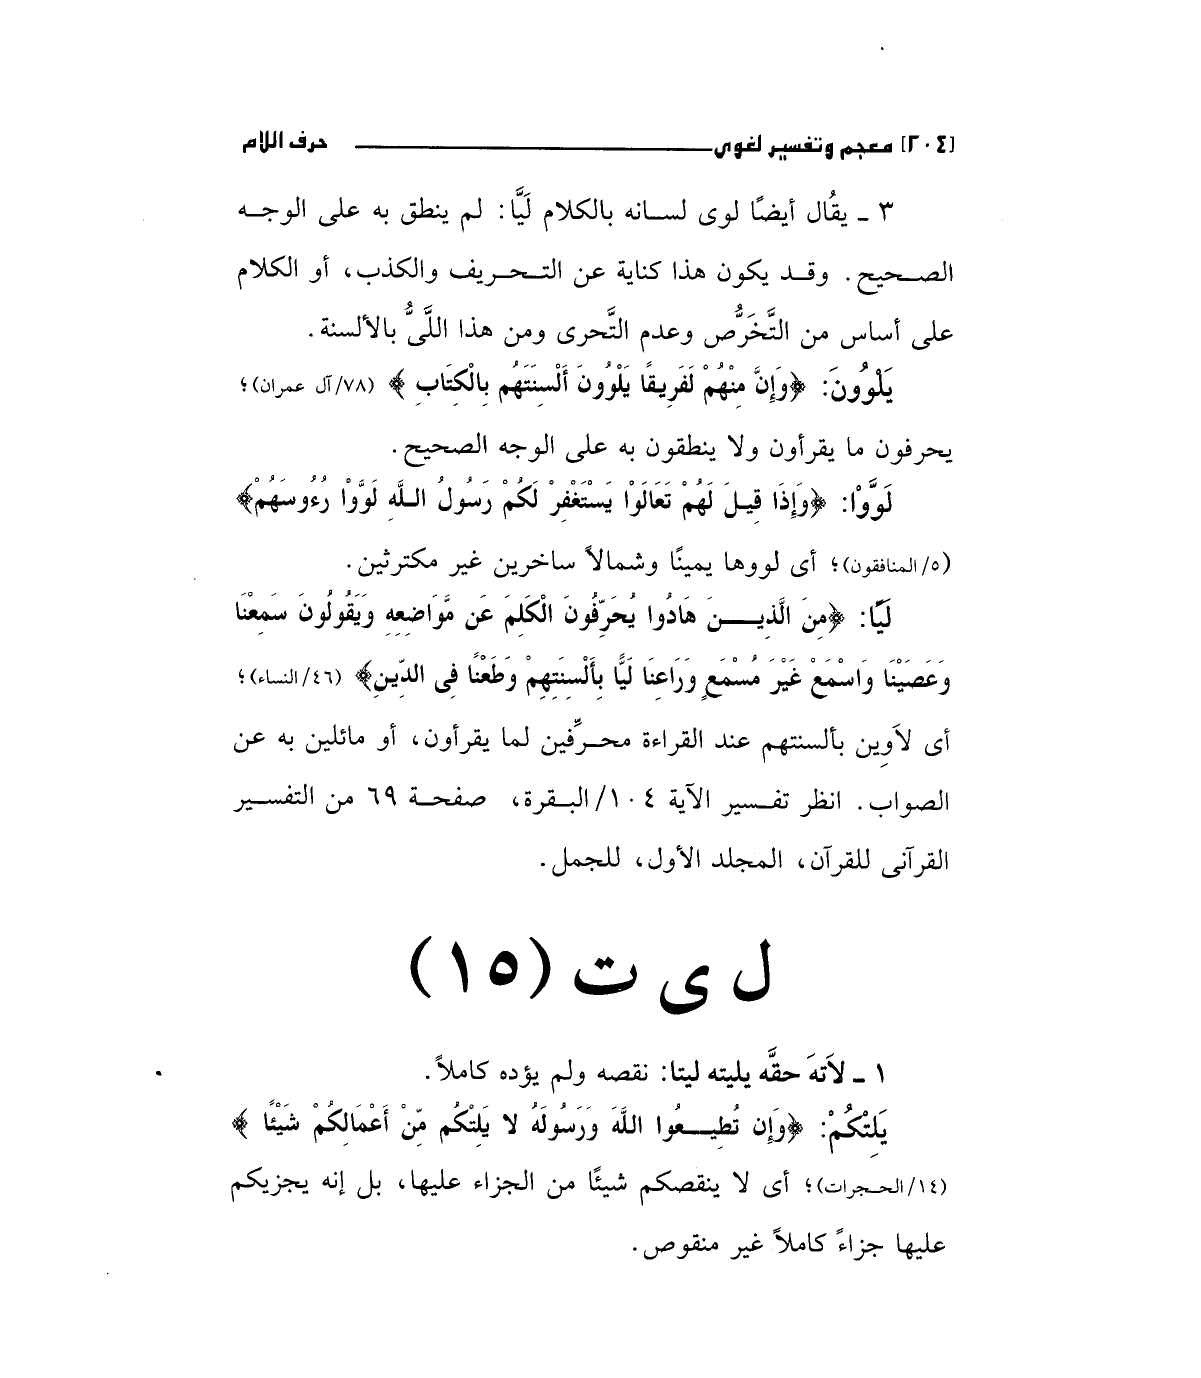 [٢٠٤] معجم وتفسير لغوى ــــــــــ حرف اللام
٣ ـ يقُال أيضًا لوى لسـانه بالكلام لَيًّا: لم ينطق به على الوجـه
الصـحيح. وقـد يكون هذا كناية عن التـحـريف والكذب، أو الكلام
على أساس من التَّخَرُّص وعدم التَّحرى ومن هذا اللَّىُّ بالألسنة.
يَلْوُونَ: ﴿وَإِنَّ مِنْهُمْ لَفَرِيقًا يَلْوُونَ أَلْسِنَتَهُم بِالْكِتَابِ ﴾ (٧٨/آل عمران)؛
يحرفون ما يقرأون ولا ينطقون به على الوجه الصحيح.
لَوَّوْا: ﴿وَإِذَا قِيلَ لَهُمْ تَعَالَوْا يَسْتَغْفِرْ لَكُمْ رَسُولُ اللَّهِ لَوَّوْا رُءُوسَهُمْ﴾
(٥/المنافقون)؛ أى لووها يمينًا وشمالاً ساخرين غير مكترثين.
لَيًّا: ﴿مِنَ الَّذِيـنَ هَادُوا يُحَرِّفُونَ الْكَلِمَ عَن مَّوَاضِعِهِ وَيَقُولُونَ سَمِعْنَا
وَعَصَيْنَا وَاسْمَعْ غَيْرَ مُسْمَعٍ وَرَاعِنَا لَيًّا بِأَلْسِنَتِهِمْ وَطَعْنًا فِى الدِّينِ﴾ (٤٦/النساء)؛
أى لاَوِين بألسنتهم عند القراءة محـرِّفين لما يقرأون، أو مائلين به عن
الصواب. انظر تفـسير الآية ١٠٤/البـقرة، صفحـة ٦٩ من التفسـير
القرآنى للقرآن، المجلد الأول، للجمل.
ل ى ت (١٥)
١ ـ لاَتهَ حقَّه يليته ليتا: نقصه ولم يؤده كاملاً.
يَلِتْكُمْ: ﴿وَإِن تُطِيـعُوا اللَّهَ وَرَسُولَهُ لا يَلِتْكُم مِّنْ أَعْمَالِكُمْ شَيْئًا ﴾
(١٤/الحـجرات)؛ أى لا ينقصكم شيئًا من الجزاء عليها، بل إنه يجزيكم
عليها جزاءً كاملاً غير منقوص.